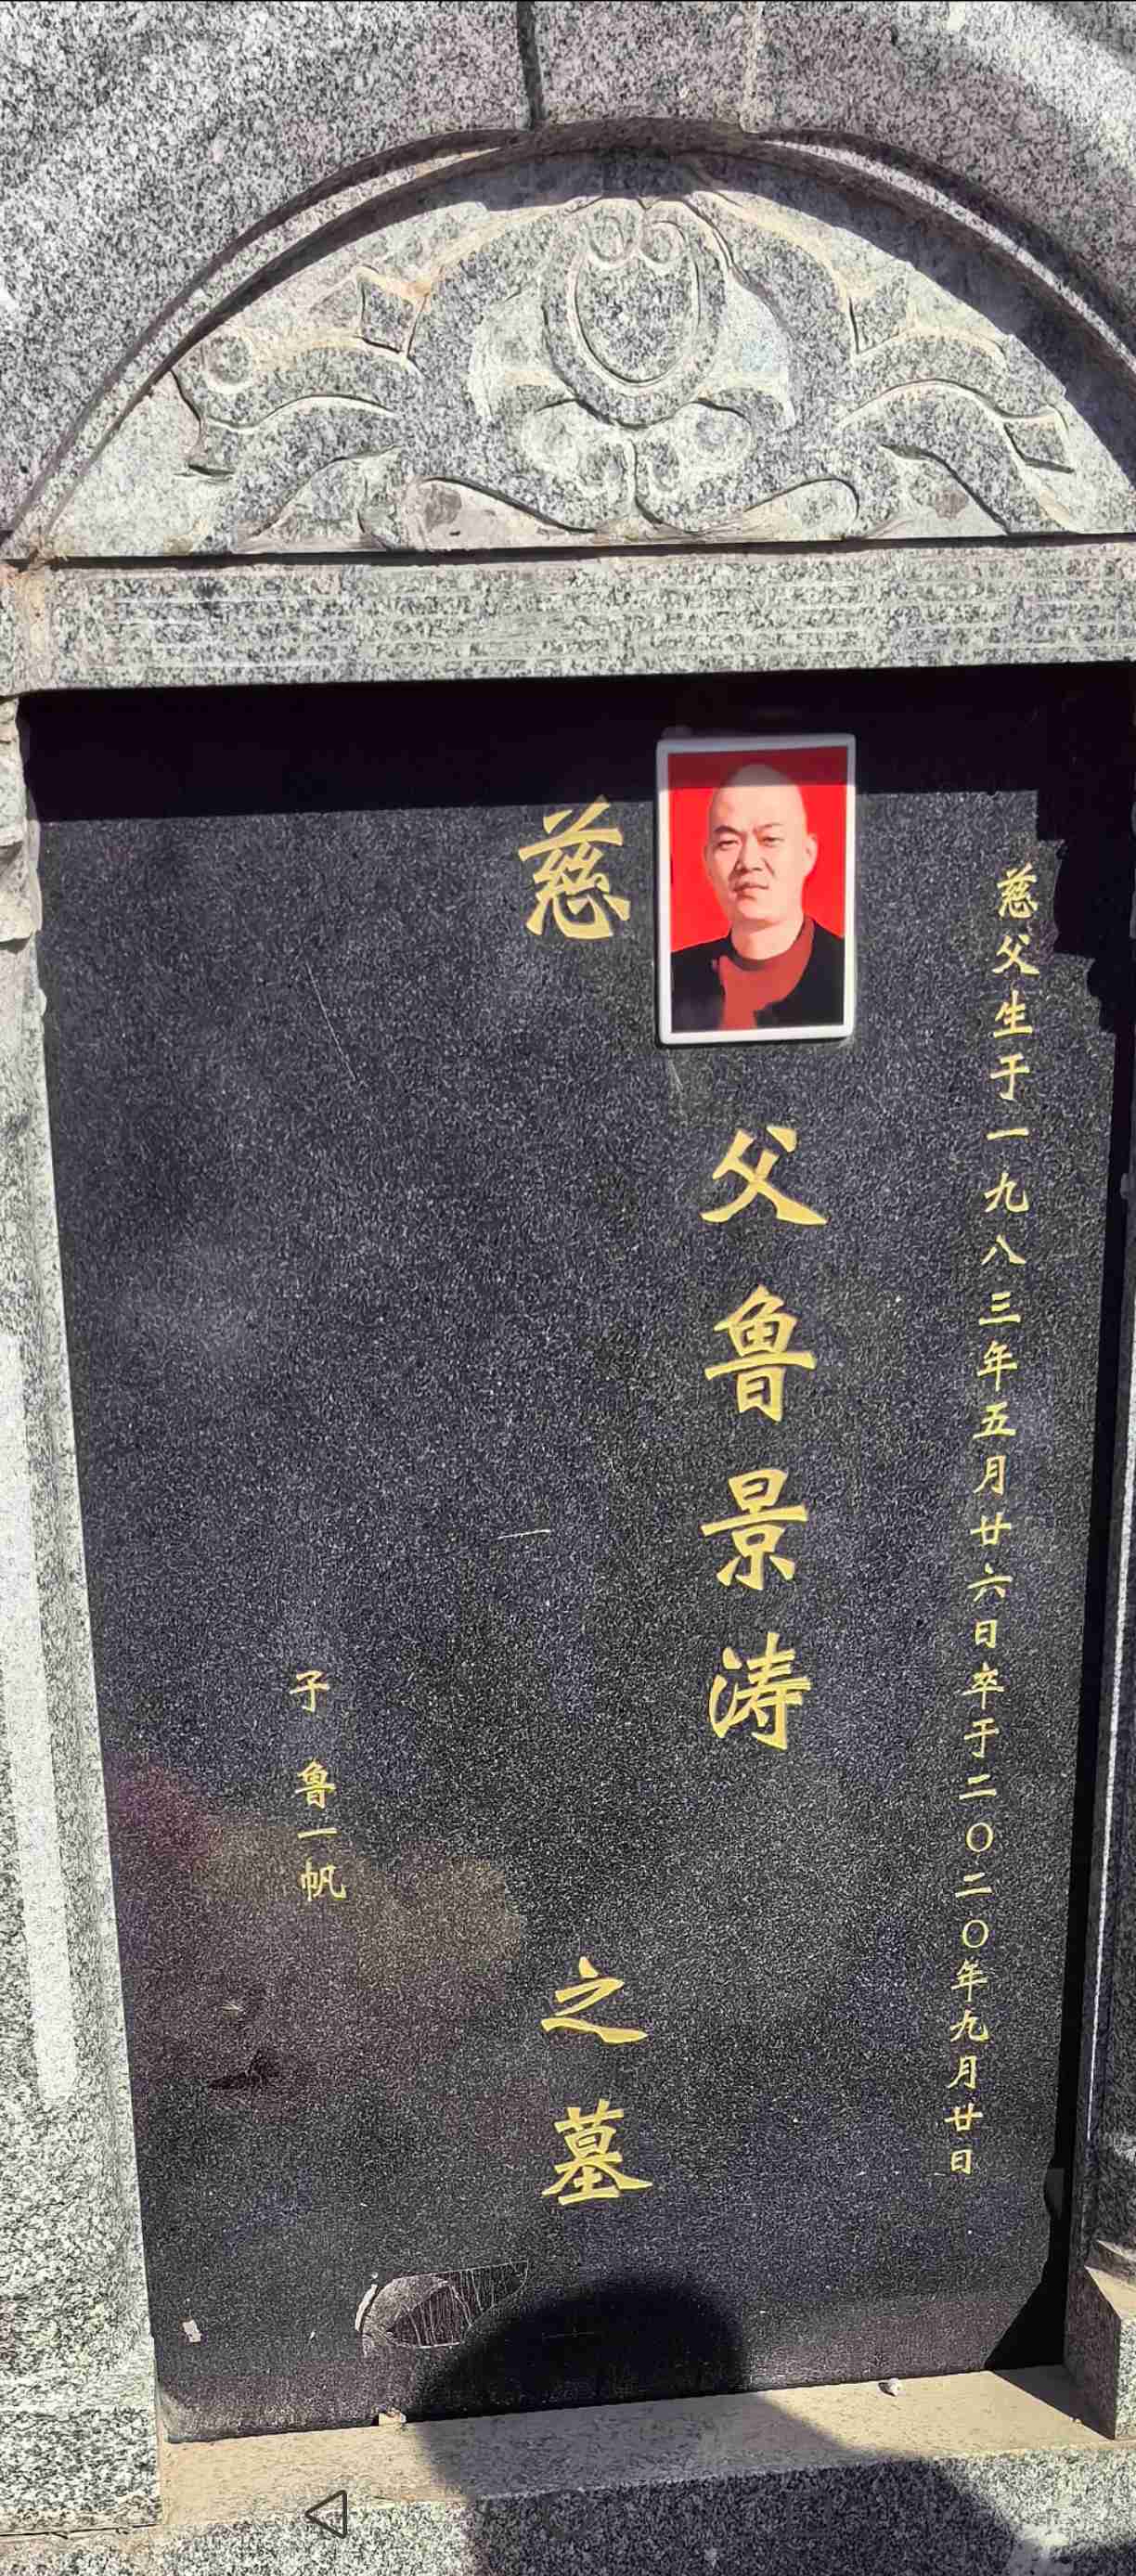 慈父生于一九八三年五月廿六日卒于二〇二〇年九月廿日
慈父鲁景涛之墓
子鲁一帆